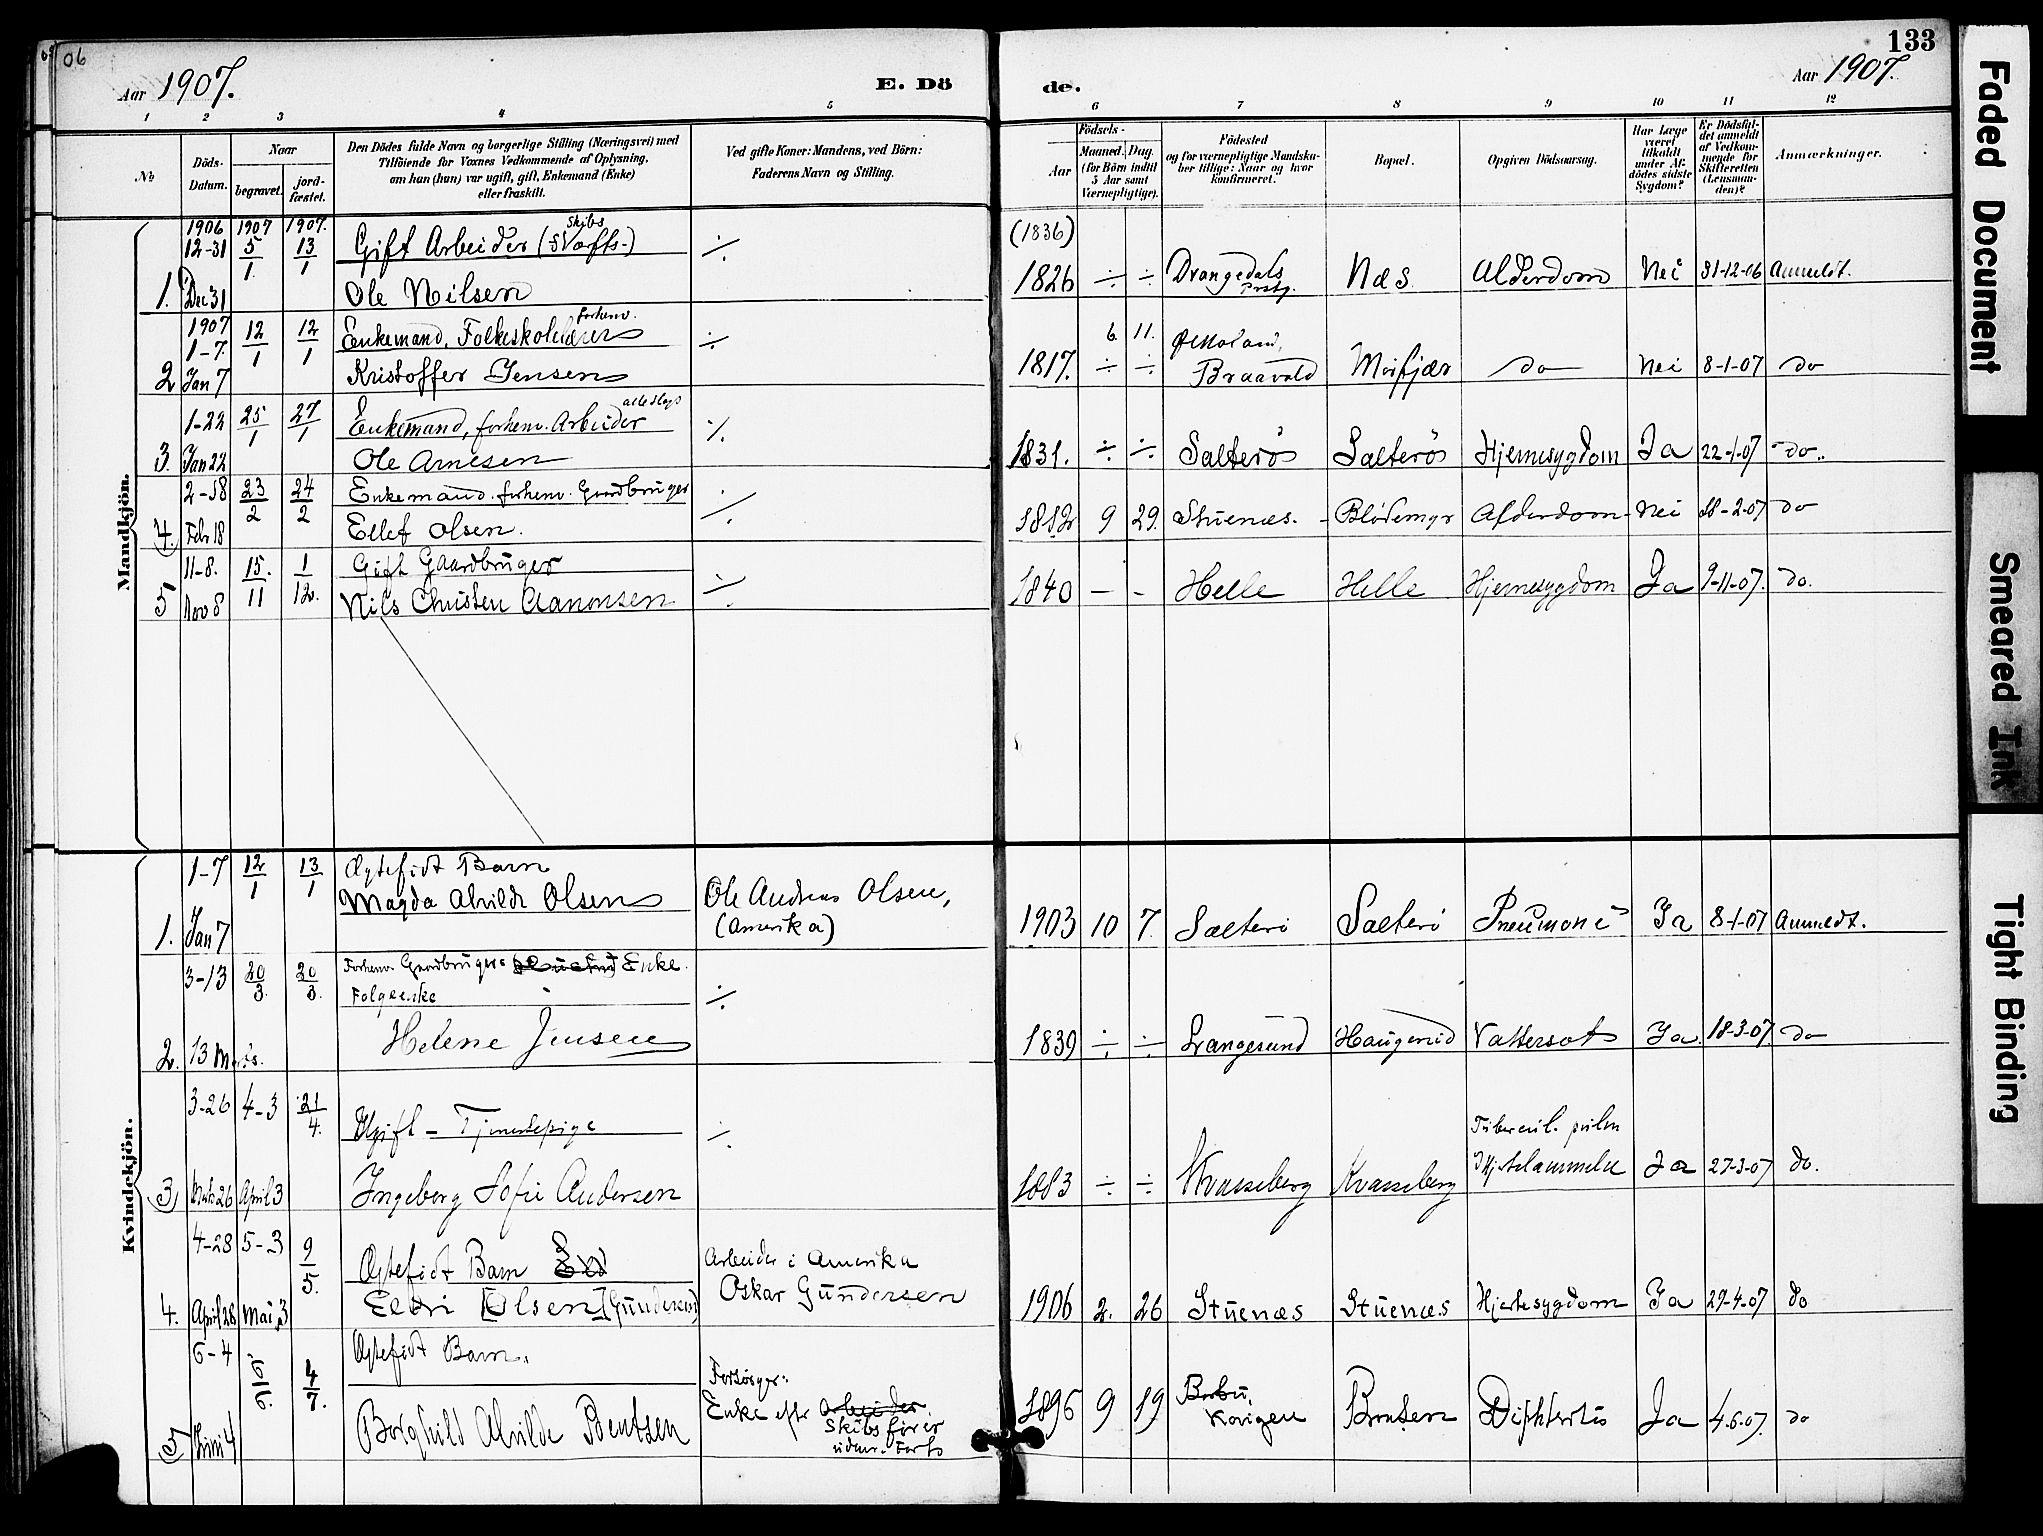 06
133
Aar 1907.
E. Dö
de.
Aar 1907.
1 2 3 4 5
6 7 8 9 10 11 12
№
Döds-Datum.
Naar
begravet.
jord-fæstet.
Den Dödes fulde Navn og borgerlige Stilling (Næringsvei) med
Tilföiende for Voxnes Vedkommende af Oplysning,
om han (hun) var ugift, gift, Enkemand (Enke)
eller fraskilt.
Ved gifte Koner: Mandens, ved Börn:
Faderens Navn og Stilling.
Födsels-
Aar
Maaned. Dag.
(for Börn indtil
5 Aar samt
Værnepligtige).
Födested
og for værnepligtige Mandska-
ber tillige: Naar og hvor
konfirmeret.
Bopæl.
Opgiven Dödsaarsag.
Har Læge
været
tilkaldt
under Af-
dödes sidste
Sygdom?
Er Dödsfal-
det anmeldt
af Vedkom-
mende for
Skifteretten
(Lensman-
den)?
Anmærkninger.
Mandkjön.
1906 1907 1907.
12-31 5/1 13/1 Gift Arbeider (Skibs
(1836)
1. Dec 31 Ole Nilsen ./. 1826 ÷ ÷ Drangedals Prstg. Næs Alderdom Nei 31-12-06 Anmeldt.
1907
1-7. 12/1 12/1 Enkemand, forhenv. Folkeskolelærer ./. 6 11.
2 Jan 7 Kristoffer Jensen 1817. ÷ ÷ Braavold Morfjær do Nei 8-1-07 do
1-22 25/1 27/1 Enkemand, forhenv. Arbeider alleslags ./.
3. Jan 22 Ole Arnesen 1831. ÷ ÷ Salterös Salterös Hjernesygdom Ja 22-1-07 do..
2-18 23/2 24/2 Enkemand. forhenv. Gaardbruger ./.
4. Febr 18 Ellef Olsen. 1812 9 29. Stuenæs. Blödemyr Alderdom Nei 18-2-07 do
11-8. 15/11 1/12. Gift Gaardbruger ./.
5 Nov 8 Nils Christen Aanonsen 1840 — - Helle Helle Hjernesygdom Ja 9-11-07. do.
Kvindekjön.
1-7 12/1 13/1 Ægtefødt Barn
Magda Alvilde Olsen Ole Andreas Olsen,
(Amerika)
1. Jan 7 1903 10 7. Salterö Salterö Pneumoni Ja 8-1-07 Anmeldt.
3-13 20/3. 20/3. Forhenv. Gaardbrugers Enke.
Folgeenke ./.
2. 13 Marts. Helene Jensen 1839 ÷ ÷ Langesund Haugenid Vattersot Ja 18-3-07 do
3-26 4-3 21/4. Ugift - Tjenestepige ./. Tubercul. pulm
3) Marts 26 April 3 Ingeborg Sofie Andersen 1883 ÷ ÷ Kvasseberg Kvasseberg Ja 27-3-07 do.
4-28 5-3 9/5. Ægtefødt Barn Arbeider i Amerika
4. April 28 Mai 3 Eldri [Olsen] (Gundersen) Oskar Gundersen 1906 2. 26 Stuenæs Stuenæs Hjertesygdom Ja 29-4-07 do
6-4 6/6. 4/7. Ægtefødt Barn.
Forsörger:
5) Juni 4 Borghild Alvilde Bentsen Enke efter Arbeider
Skibsförer
1896 9 19 Barbu, Kovigen Braaten Diphteritis Ja 4-6-07. do
Faded Document
Smeared Ink
Tight Binding